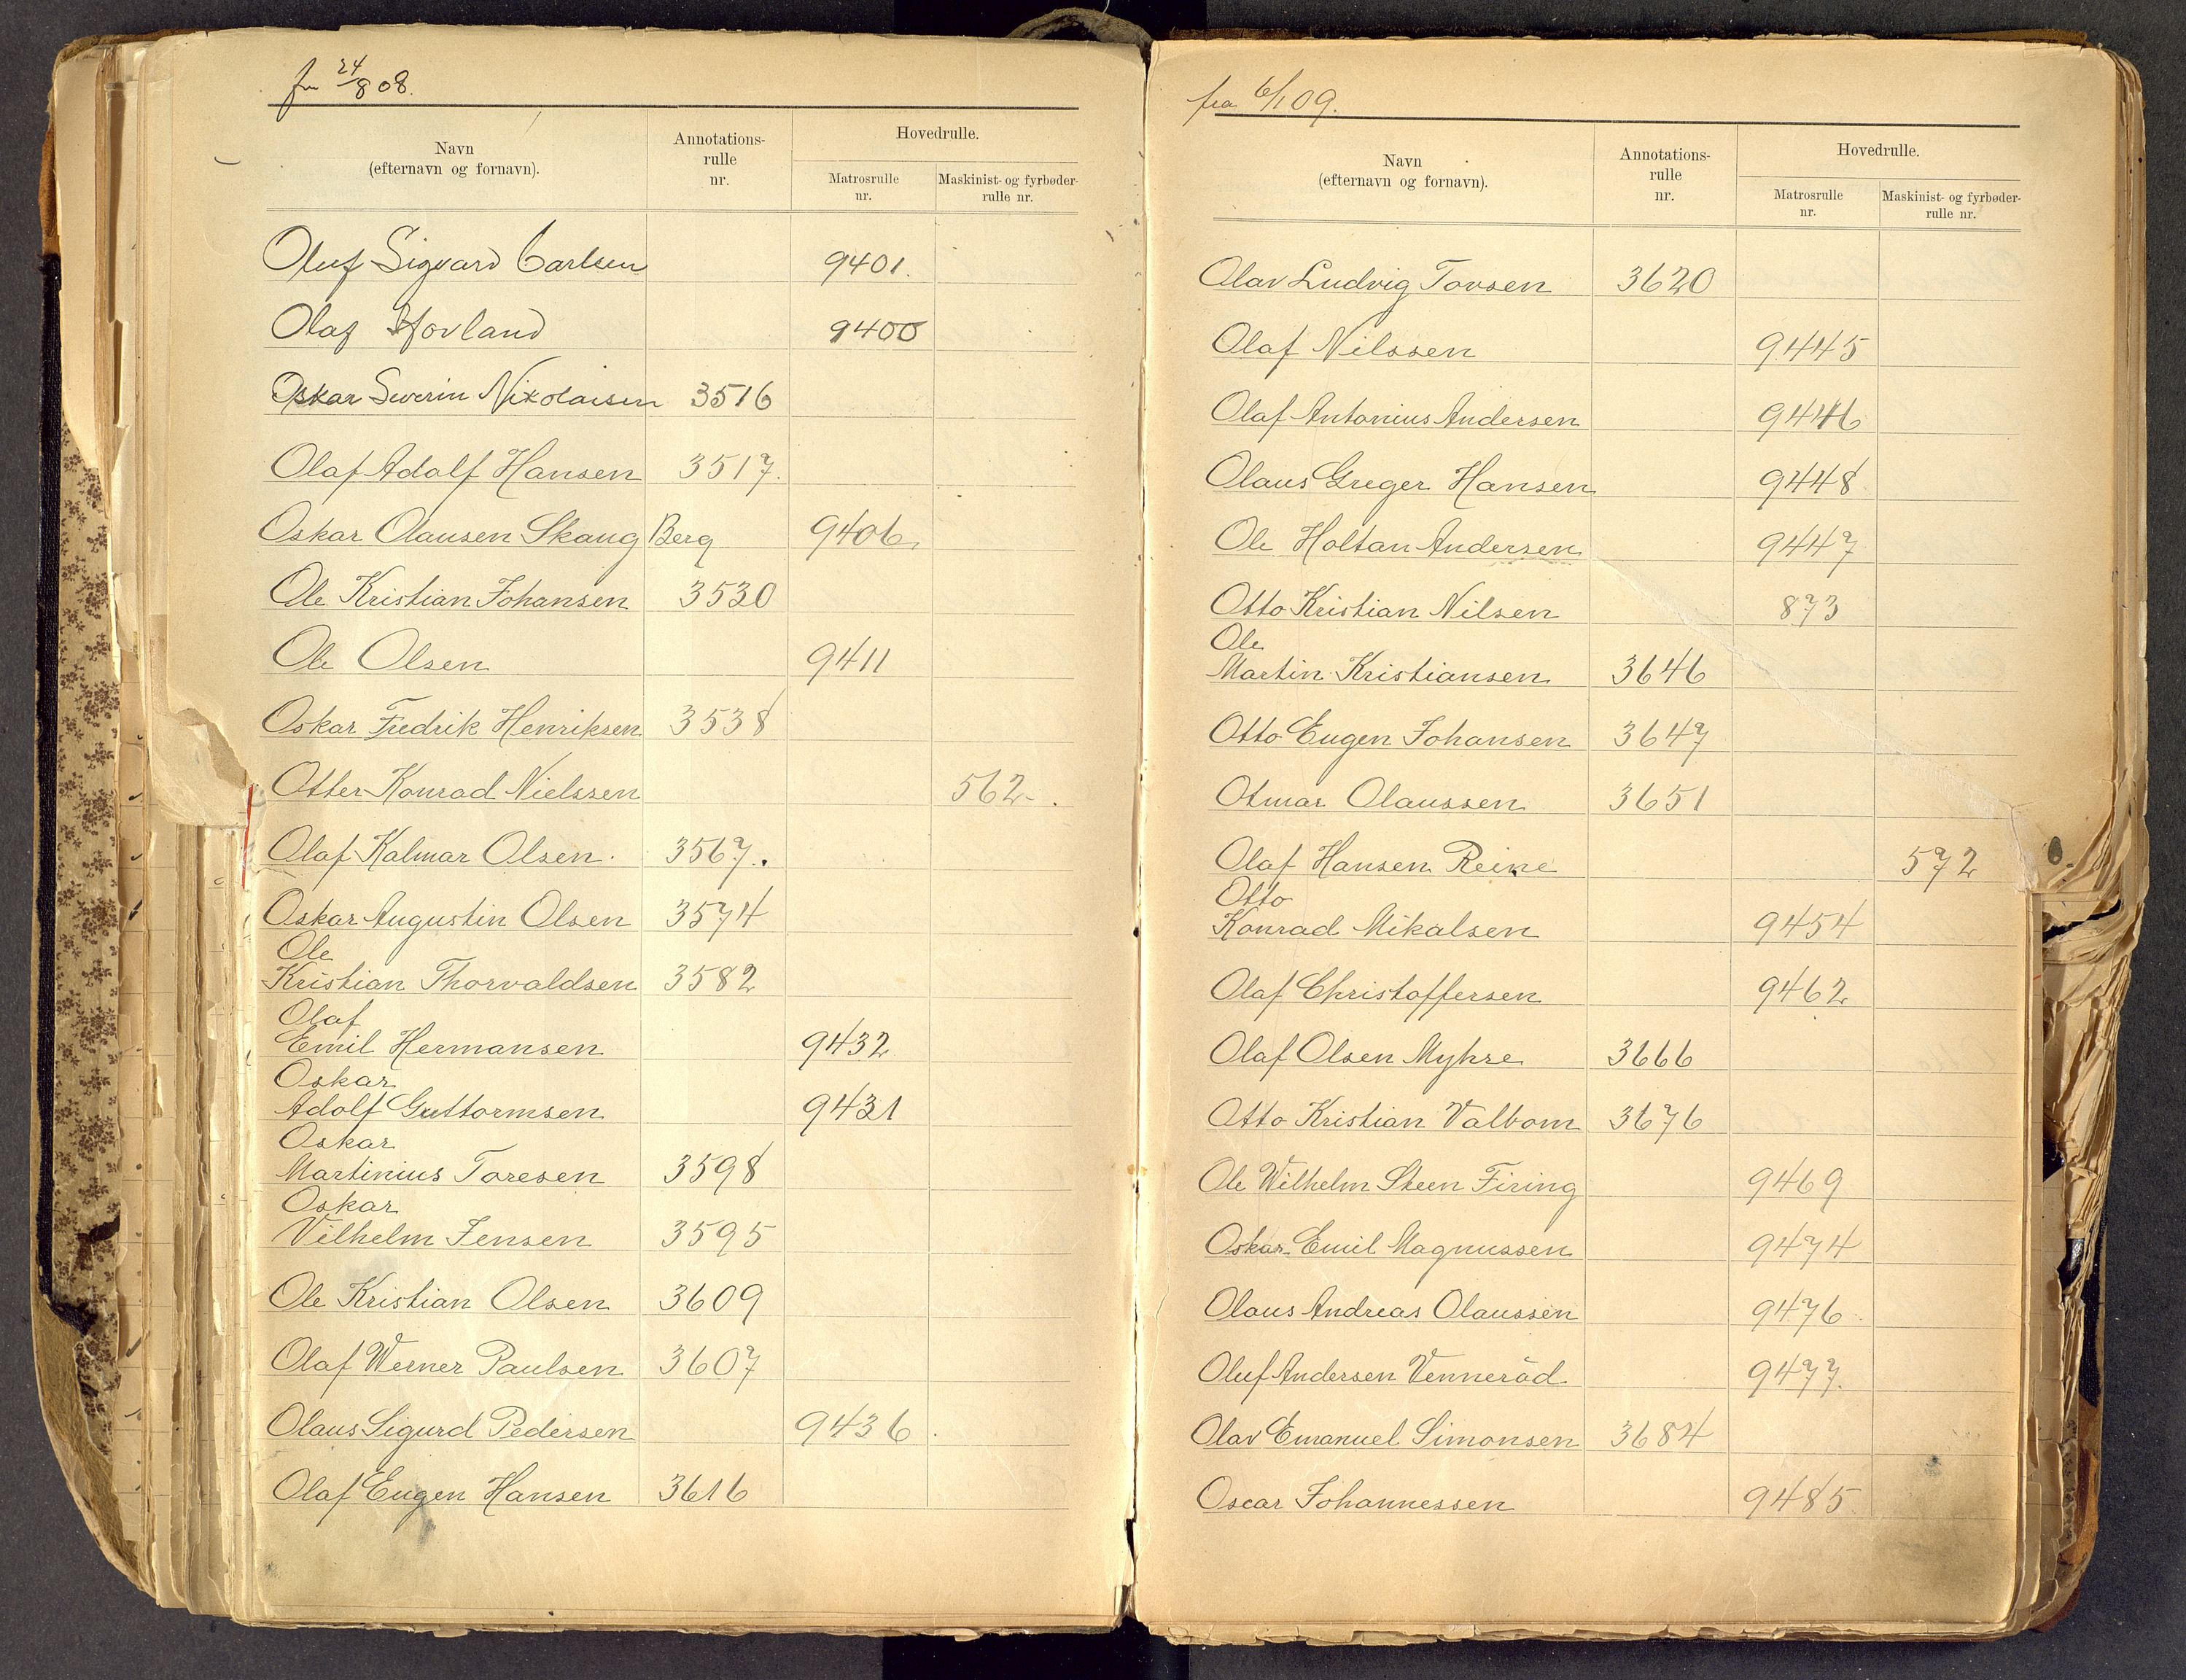 fra 24/8 08.
Navn
(efternavn og fornavn).
Annotations-
rulle
nr.
Hovedrulle.
Matrosrulle
nr.
Maskinist- og fyrbøder-
rulle nr.
Oluf Sigvard Carlsen 9401.
Olaf Hovland 9400
Oskar Severin Nikolaisen 3516
Olaf Adolf Hansen 3517.
Oskar Olausen Skaug Berg 9406
Ole Kristian Johansen 3530
Ole Olsen 9411
Oskar Fredrik Henriksen 3538
Otter Konrad Nielssen 562.
Olaf Kalmar Olsen. 3567.
Oskar Augustin Olsen 3574
Ole
Kristian Thorvaldsen 3582
Olaf
Emil Hermansen 9432
Oskar
Adolf Guttormsen 9431
Oskar
Martinius Toresen 3598
Oskar
Vilhelm Jensen 3595
Ole Kristian Olsen 3609
Olaf Werner Paulsen 3607
Olaus Sigurd Pedersen 9436
Olaf Eugen Hansen 3616
fra 6/1 09.
Navn
(efternavn og fornavn).
Annotations-
rulle
nr.
Hovedrulle.
Matrosrulle
nr.
Maskinist- og fyrbøder-
rulle nr.
Olav Ludvig Tovsen 3620
Olaf Nilssen 9445
Olaf Antonius Andersen 9446
Olaus Greger Hansen 9448
Ole Holtan Andersen 9447
Otto Kristian Nilsen 873
Ole
Martin Kristiansen 3646
Otto Eugen Johansen 3647
Otmar Olaussen 3651
Olaf Hansen Reine 572
Otto
Konrad Mikalsen 9454
Olaf Christoffersen 9462
Olaf Olsen Myhre 3666
Otto Kristian Valbom 3676
Ole Wilhelm Steen Firing 9469
Oskar Emil Magnussen 9474
Olaus Andreas Olaussen 9476
Oluf Andersen Venneråd 9477.
Olav Emanuel Simonsen 3684
Oscar Johannessen 9485